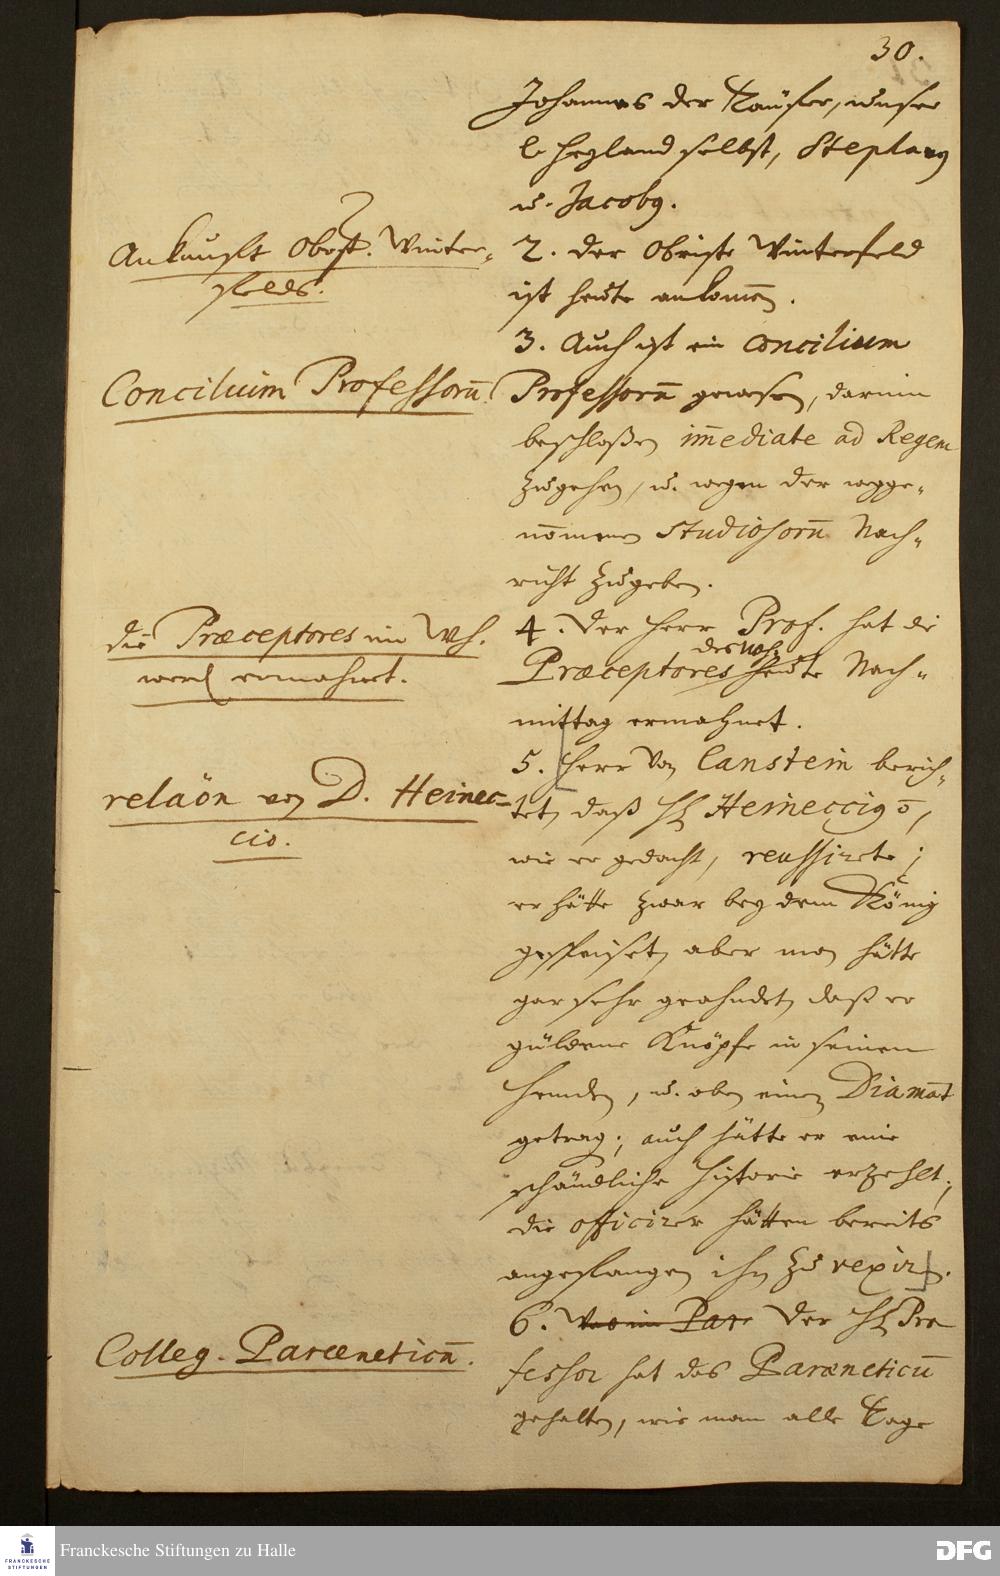 30.
Johannes der Täufer, unser
l. Heyland selbst, Stephanus
u. Jacobus.
Ankunfft Obrist. Winter-
felds.
2. der Obriste Winterfeld
ist heute ankom̅en.
3. Auch ist ein Concilium
Concilium Professorum̅.
Professorum̅ gewesen, darinn
beschloßen im̅ediate ad Regem
zugehen, u. wegen der wegge-
nom̅enen Studiosorum̅ Nach-
richt zugeben.
die Præceptores im Wh.
werd ermahnet.
4. Der Herr Prof. hat die
des Wh.
Præceptores heute Nach-
mittag ermahnet.
5. Herr von Canstein berich-
relaõn von D. Heinec-
cio.
tet, daß H. Heineccius õ,
wie er gedacht, reussirete;
er hätte zwar bey dem König
gespeiset, aber man hätte
gar sehr geahndet, daß er
güldene Knöpfe in seinen
Hemden, u. oben einen Diamant
getrag.; auch hätte er eine
schändliche Historie erzehlt;
die officirer hätten bereits
angefangen ihn zu vexiren.
Colleg. Parænetic̅u.
6. Par Der H. Pro
fessor hat das Parænetic̅u
gehalten, wie man alle Tage
Franckesche Stiftungen zu Halle
FRANCKESCHE
STIFTUNGEN
DFG